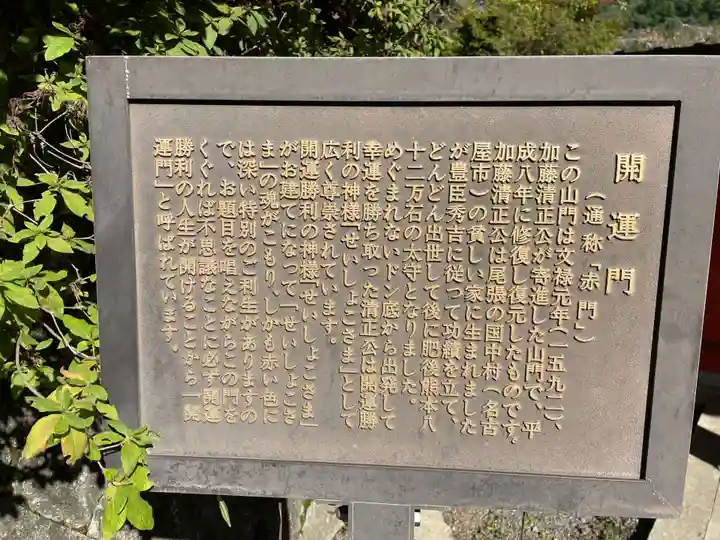 開運門
(通称「赤門」)
この山門は文禄元年(一五九二)、
加藤清正公が寄進した山門で、平
成八年に修復し復元したものです。
加藤清正公は尾張の国中村(名古
屋市)の貧しい家に生まれました
が豊臣秀吉に従って功績を立て、
どんどん出世して後に肥後熊本八
十二万石の太守となりました。
めぐまれないドン底から出発して
幸運を勝ち取った清正公は開運勝
利の神様「せいしょこさま」として
広く尊崇されています。
開運勝利の神様「せいしょこさま」
がお建てになって「せいしょこさ
ま」の魂がこもり、しかも赤い色に
は深い特別のご利生がありますの
で、お題目を唱えながらこの門を
くぐれば不思議なことに必ず開運
勝利の人生が開けることから「開
運門」と呼ばれています。